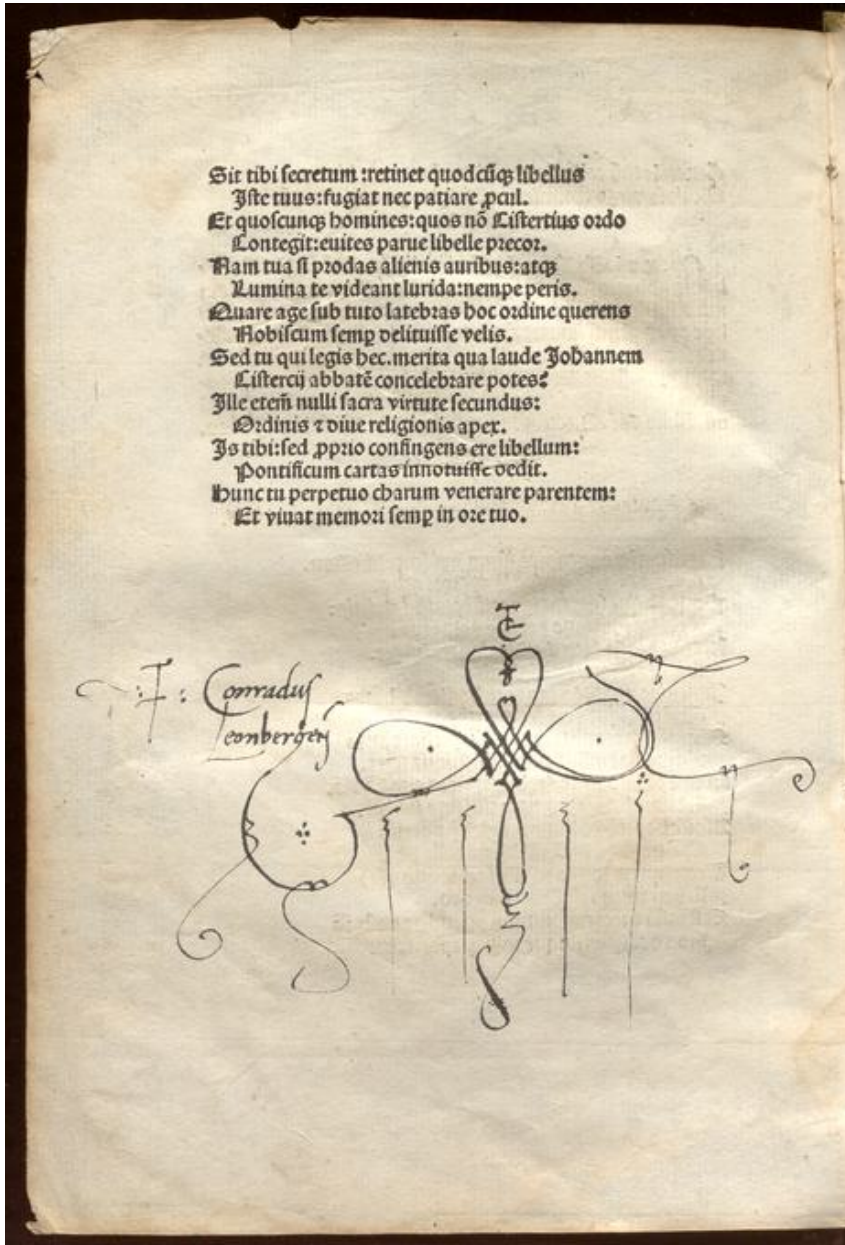 Sit tibi secretum :retinet quodcūqꝫ libellus
Iste tuus:fugiat nec patiare ꝓcul.
Et quoscunqꝫ homines:quos nō Cistertius ordo
Contegit:euites parue libelle precor.
Nam tua si prodas alienis auribus:atqꝫ
Lumina te videant lurida:nempe peris.
Quare age sub tuto latebras hoc ordine querens
Nobiscum semꝑ delituisse velis.
Sed tu qui legis hec.merita qua laude Johannem
Cistercij abbatē concelebrare potes?
Ille etem̄ nulli sacra virtute secundus:
Ordinis ⁊ diue religionis apex.
Is tibi:sed ꝓprio confingens ere libellum:
Pontificum cartas innotuisse dedit.
Hunc tu perpetuo charum venerare parentem:
Et viuat memori semꝑ in ore tuo.
: F : Conradus
Leonbergeñ